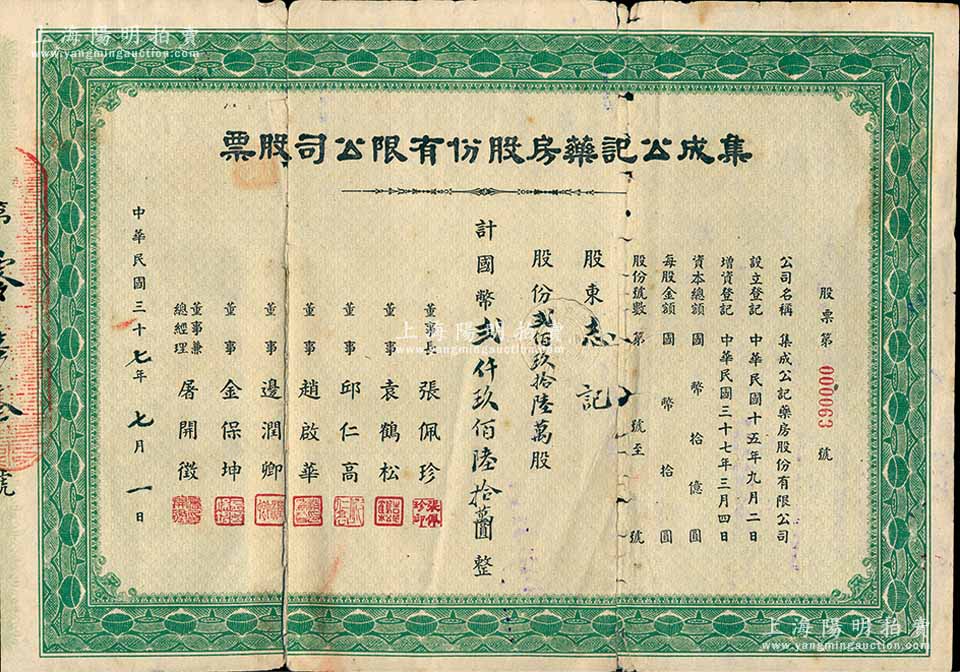 上海陽明拍賣
www.yangmingauction.com
集成公記藥房股份有限公司股票
股票第 000063 號
公司名稱 集成公記藥房股份有限公司
設立登記 中華民國十五年九月二日
增資登記 中華民國三十七年三月四日
資本總額 國幣拾億圓
每股金額 國幣拾圓
股份號數 第 號至 號
股東 志記
股份貳佰玖拾陸萬股
計國幣貳仟玖佰陸拾萬圓整
董事長 張佩珍
董事 袁鶴松
董事 邱仁高
董事 趙啟華
董事 邊潤卿
董事 金保坤
董事兼總經理 屠開徵
中華民國三十七年七月一日
上海陽明拍賣
www.yangmingauction.com
上海陽明拍賣
www.yangmingauction.com